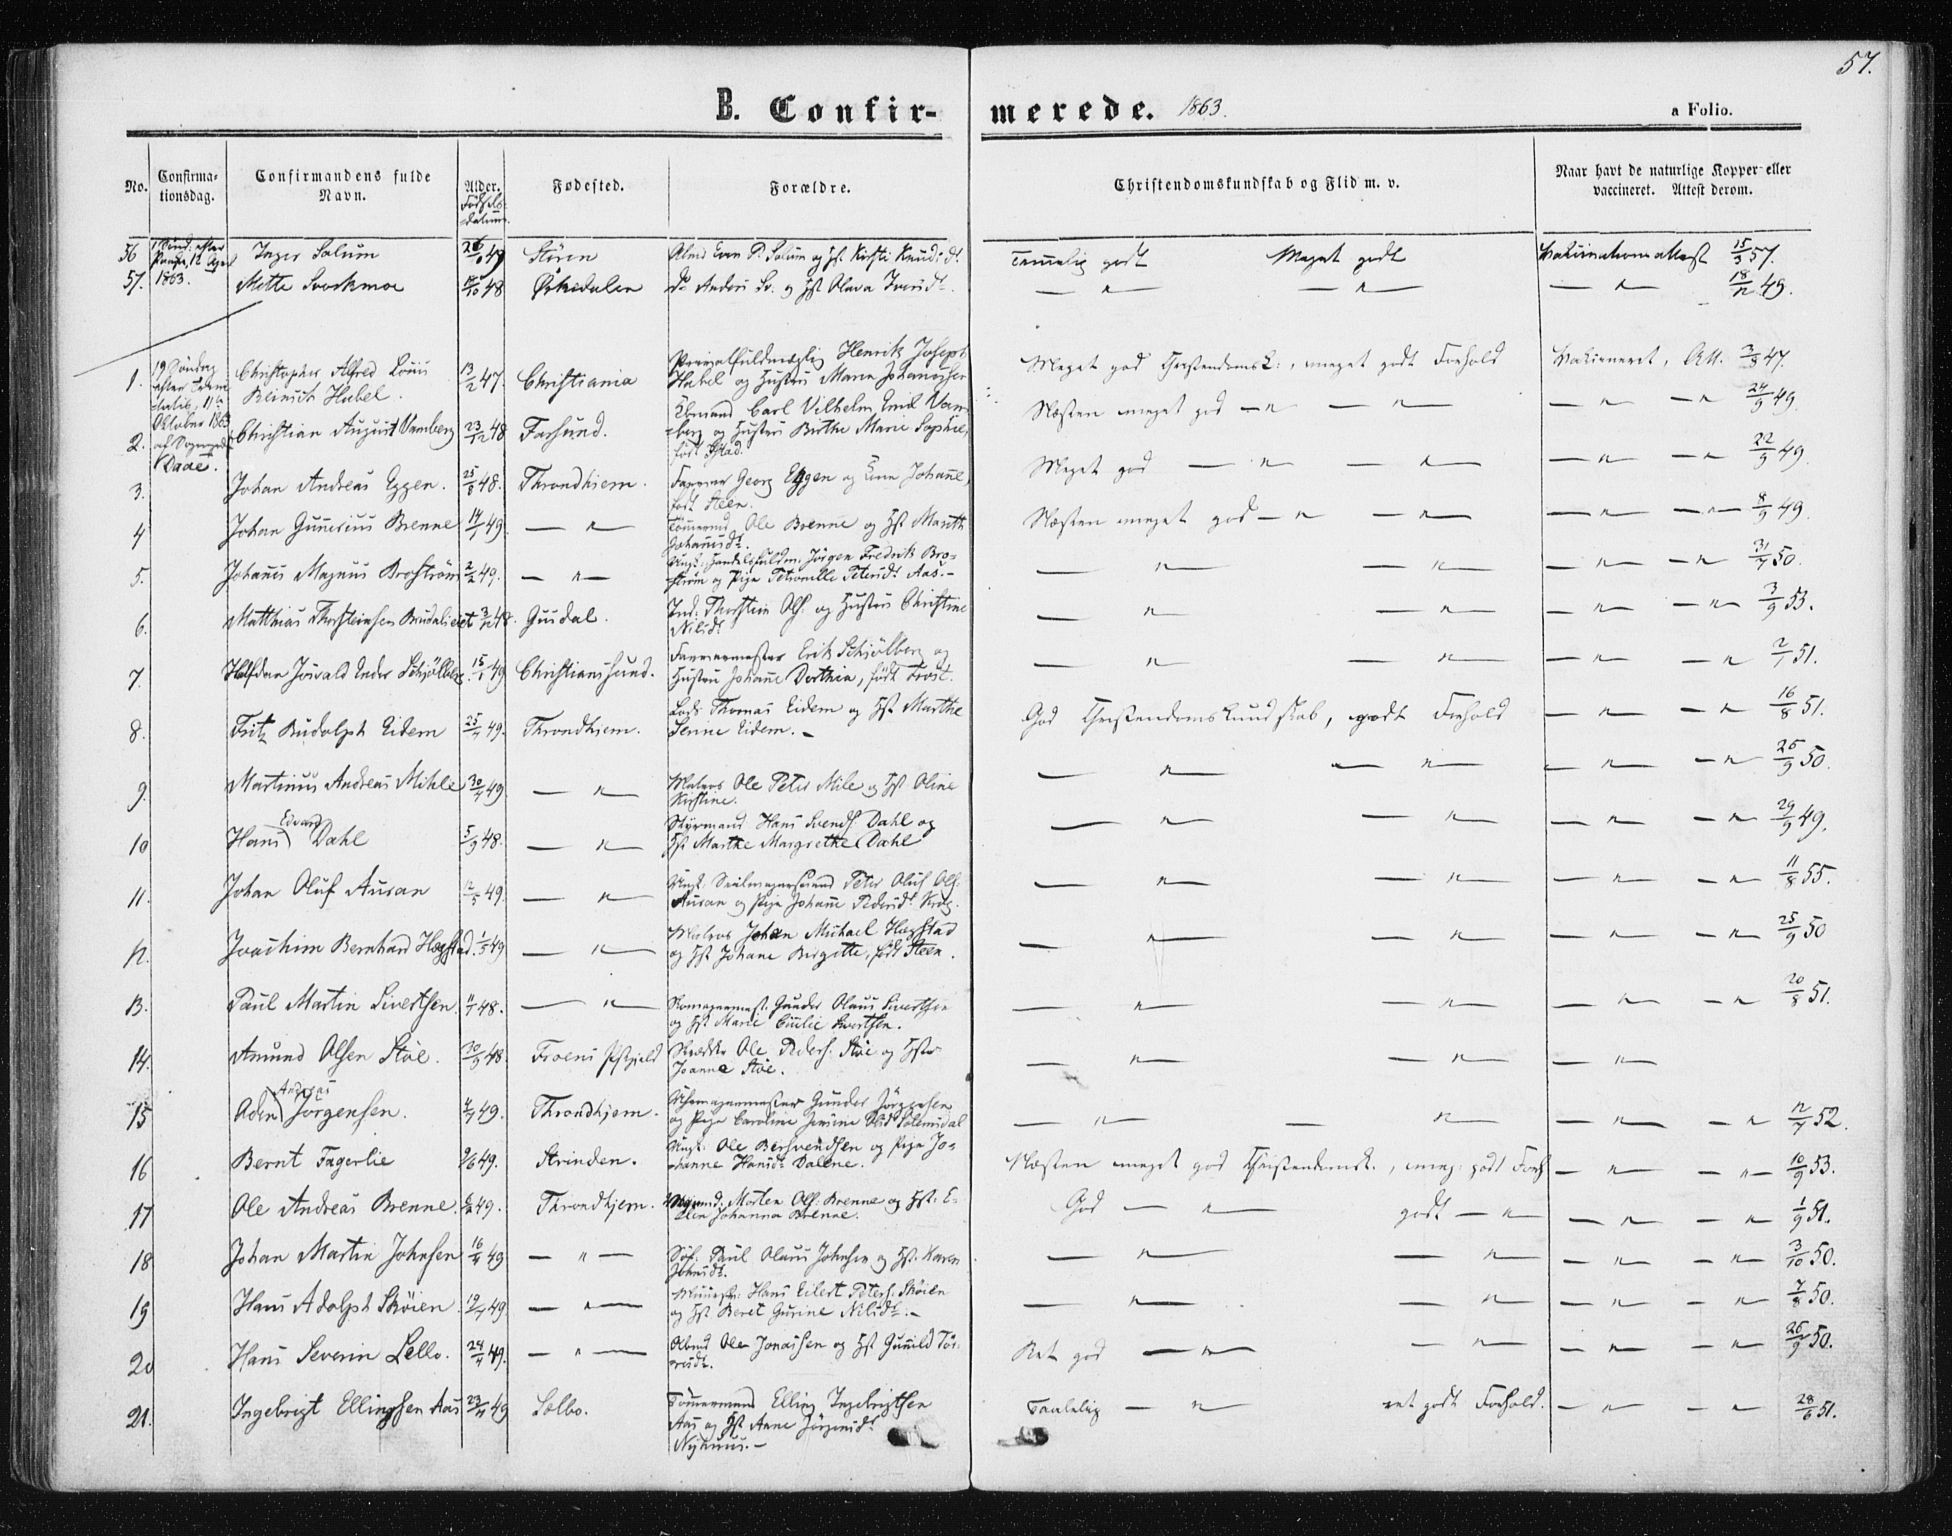 57.
B. Confirmerede. 1863.
a Folio.
No. Confirmationsdag. Confirmandens fulde Navn. Alder. Fødselsdatum. Fødested. Forældre. Christendomskundskab og Flid m. v. Naar havt de naturlige Kopper eller vaccineret. Attest derom.
56 1863. Inger Solum 49 Stören Solum og Hst Kirsti Knudsd. Temmelig godt Meget godt Vaksinationsattest 15/3 57.
57. Mette Svorkmoe 48 Örkedalen Do Anders Sv. og Hst Olava Iversdt. — " — — " — — " — 18/12 49.
19 Söndag efter Trinitatis, 11te Oktober 1863 af Sogneprest Daae.
1. Christopher Alfred Louis Heinrich Hubel. 13/2 47. Christiania Henrik Joseph Hubel og Hustru Maren Johannesen Meget god Christendomsk:, meget godt Forhold Vakcineret, Att. 3/8 47.
2. Christian August Vamberg 23/12 48 Farsund. Carl Vilhelm Emil Vamberg og Hustru Birthe Marie Sophie, født Næsten meget god — " — — " — — " — — " 24/9 49.
3. Johan Andreas Eggen. 25/8 48. Throndhjem. Farver Georg Eggen og Kone Johanne, født Steen. Meget god — " — — " — — " — — " 22/9 49.
4 Johan Gunerius Brenne 14/1 49. — " — Tømmermd Ole Brenne og Hst Marith Johannesdt. Næsten meget god — " — — " — — " — — " — 8/9 49.
5. Johannes Magnus Broström 2/2 49. — " — Ungk: Handelsfuldm: Jörgen Fredrik Broström og Pige Petronelle Petersdt Aas. — " — — " — — " — — " 31/7 50.
6. Matthias Thorsteinsen Brudalieet 3/12 48. Guldal. Ind: Thorstein Ols. og Hustru Christine Nilsdt — " — — " — — " — — " 3/9 53.
7. Halfdan Josvald Ender Schjölberg. 15/1 49 Christianssund. Farvermester Erik Schjölberg og Hustru Johanne Dorthea, født Frost. — " — — " — — " — — " 2/1 51.
8. Fritz Rudolph Eidem 25/4 49. Throndhjem. Lods Thomas Eidem og Hst Marthe Senne Eidem. God Christendomskundskab, godt Forhold — " — — " 16/8 51.
9. Martinus Andreas Mihle 30/4 49 — " — Matros Ole Peter Mile og Hst Oline Kirstine. — " — — " — — " — — " 25/9 50.
10 Hans Edvard Dahl 5/9 48. — " — Styrmand Hans Svends. Dahl og Hst Marthe Margrethe Dahl — " — — " — — " — — " 29/9 49.
11. Johan Oluf Auran 12/5 49. — " — Ungk: Seilmagersvend Peter Oluf Ols. Auran og Pige Johanne Pedersdt Krog. — " — — " — — " — — " 11/8 55.
12. Joachim Bernhard Hegstad. 1/5 49 — " — Matros Johan Michael Hegstad og Hst Johane Birgitte, født Steen. — " — — " — — " — — " 25/9 50
13. Paul Martin Sivertsen. 11/1 48. — " — Skomagermest. Gunder Olaus Sivertsen og Hst Marie Emilie Sivertsen. — " — — " — — " — — " 20/8 51.
14. Amund Olsen Stöe. 30/9 48. Froens Pstgjeld Skrædder Ole Peders. Stöe og Hst Joanna Stöe. — " — — " — — " —
15 Aden Andreas Jörgensen. 4/7 49. Throndhjem. Gunder Jörgensen og Pige Caroline — " — — " — — " — — " 12/7 52.
16 Bernt Fagerlie 9/6 49. Strinden. Ungk: Ole Bersvendsen og Pige Johanne Hansdt Dalene. Næsten meget god Christendomsk., meg: godt Forh — " — — " 10/9 53.
17 Ole Andreas Brenne. 6/2 49. Throndhjem. Morten Ols. Brenne og Hst: Elen Johanna Brenne. God — " — godt — " — " — — " 1/9 51.
18 Johan Martin Johnsen 16/4 49 — " — Söf: Paul Olaus Johnsen og Hst: Karen Johnsdt. — " — — " — — " — — " 3/10 50.
19 Hans Adolph Sköien 19/4 49. — " — Hans Eilert Peters. Sköien og Hst Beret Gurine Nilsdt. — " — — " — — " — — " 7/8 50.
20 Hans Severin Lello. 24/4 49. — " — Ole Jonassen og Hst Gunild Ret god — " — — " — — " — — " 25/9 50.
21. Ingebrigt Ellingsen Aas 23/11 49 Selbo. Tömmermand Elling Ingebrigtsen Aas og Hst Anne Jörgensdt Nyhuus. Taalelig — " ret godt Forhold. — " — — " 28/6 51.